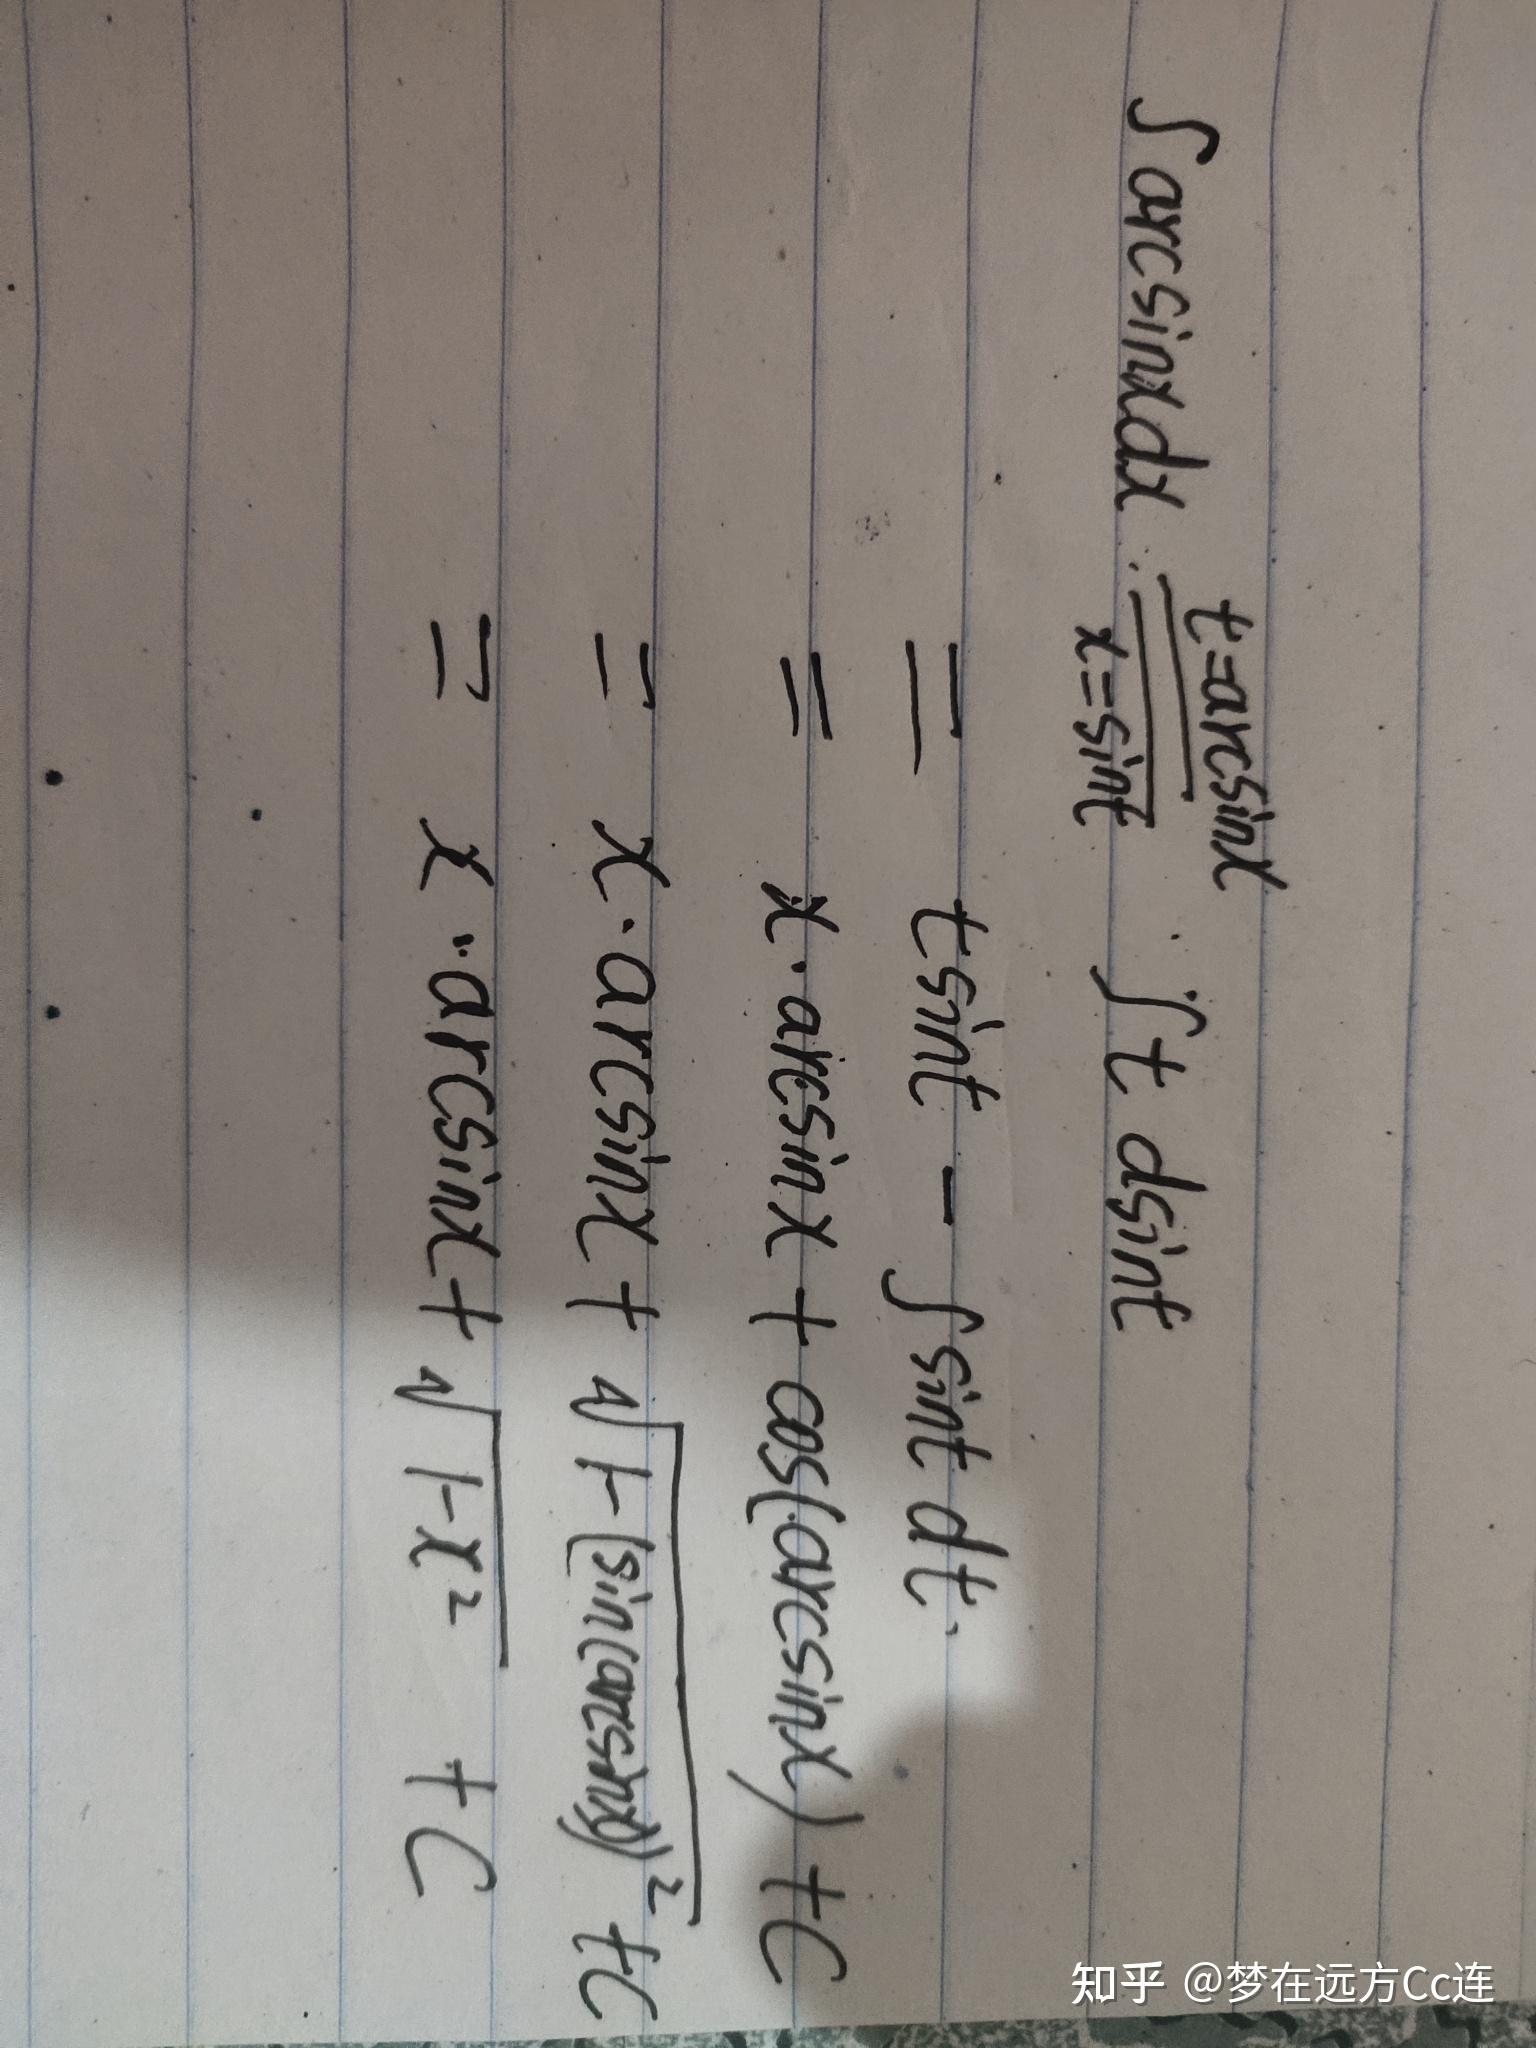 ∫arcsinxdx t=arcsinx x=sint ∫t dsint
= tsint - ∫sint dt
= x·arcsinx + cos(arcsinx) + C
= x·arcsinx + √1-(sin(arcsinx))² + C
= x·arcsinx + √1-x² + C
知乎 @梦在远方Cc连